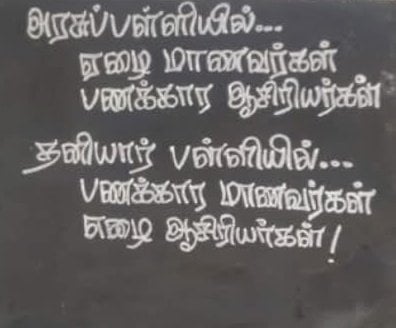 அரசுப்பள்ளியில்...
ஏழை மாணவர்கள்
பணக்கார ஆசிரியர்கள்
தனியார் பள்ளியில்...
பணக்கார மாணவர்கள்
ஏழை ஆசிரியர்கள்!